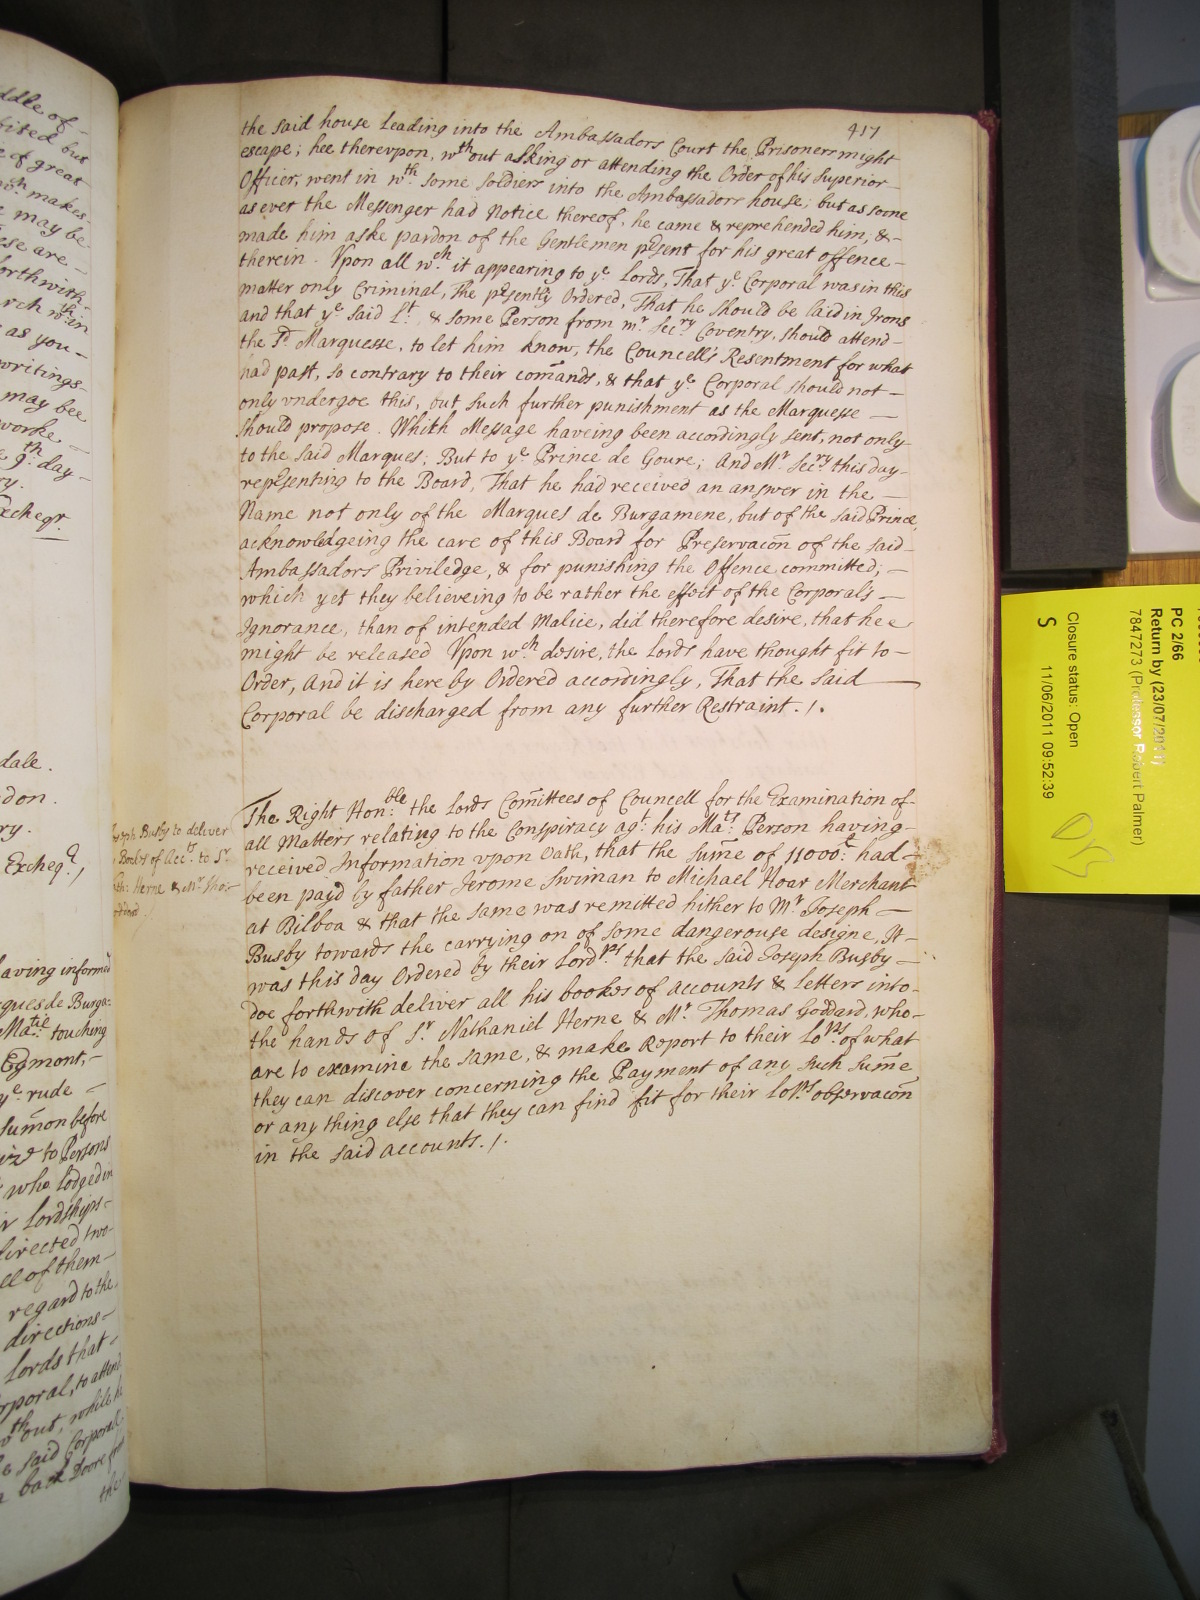 417
the said house Leading into the Ambassadors Court the Prisoners might
escape; hee therevpon, wth out asking or attending the Order of his Superior
Officer, went in wth. some soldiers into the Ambassadors house; but as soone
as ever the Messenger had Notice thereof, he came & reprehended him, &
made him aske pardon of the Gentlemen pesent for his great offence
therein. Vpon all wch. it appearing to ye Lords, That ye Corporal was in this
matter only Criminal, The pesently Ordered, That he should be laid in Irons
and that ye said Lt. & some Person from mr Secry Coventry, should attend
the sd Marquesse, to let him know, the Councells Resentment for what
had past, so contrary to their comands, & that ye Corporal should not
only vndergoe this, but such further punishment as the Marquesse
should propose. Which Message haveing been accordingly sent, not only
to the said Marques; But to ye Prince de Goure; And Mr Secry this day
repesenting to the Board, That he had received an answer in the
Name not only of the Marques de Burgamene, but of the said Prince,
acknowledgeing the care of this Board for Preservacon of the said
Ambassadors Priviledge, & for punishing the Offence committed;
which yet they believeing to be rather the effect of the Corporals
Ignorance, than of intended Malice, did therefore desire, that hee
might be released Vpon wch desire, the Lords have thought fit to
Order, And it is hereby Ordered accordingly, That the said
Corporal be discharged from any further Restraint. /.
Joseph Busby to deliver
Books of acctts. to Sr.
Herne & Mr Tho:
The Right Honble: the Lords Comittees of Councell for the Examination of
all Matters relating to the Conspiracy agt. his Mats: Person having
received Information vpon Oath, that the sume of 11000: had
been payd by father Jerome Swiman to Michael Hoar Merchant
at Bilboa & that the same was remitted hither to Mr Joseph
Busby towards the carrying on of some dangerouse designe, It
was this day Ordered by their Lordps that the said Joseph Busby
doe forthwith deliver all his bookes of accounts & Letters into
the hands of Sr Nathaniel Herne & Mr. Thomas Goddard, who
are to examine the same, & make Report to their Lops of what
they can discover concerning the Payment of any such sume
or any thing else that they can find fit for their Lops observacon
in the said accounts. /.
of
but
of great
makes
may be
are
forthwith
as you
writings
may bee
worke
9th. day
Excheqr.
dale.
don.
ry.
Excheqr,
having informed
Marquesde Burga:
Matie touching
Egmont,
ye. rude
sumon before
to Persons
who lodged in
Lordships
directed two
of them
regard to the
directions
Lords that
Corporal, to attend
wthout, while
said Corporal
back Doore from
the
PC 2/66
Return by (23/07/2011)
7847273 (Professor Robert Palmer)
Closure status: Open
S 11/06/2011 09:52:39